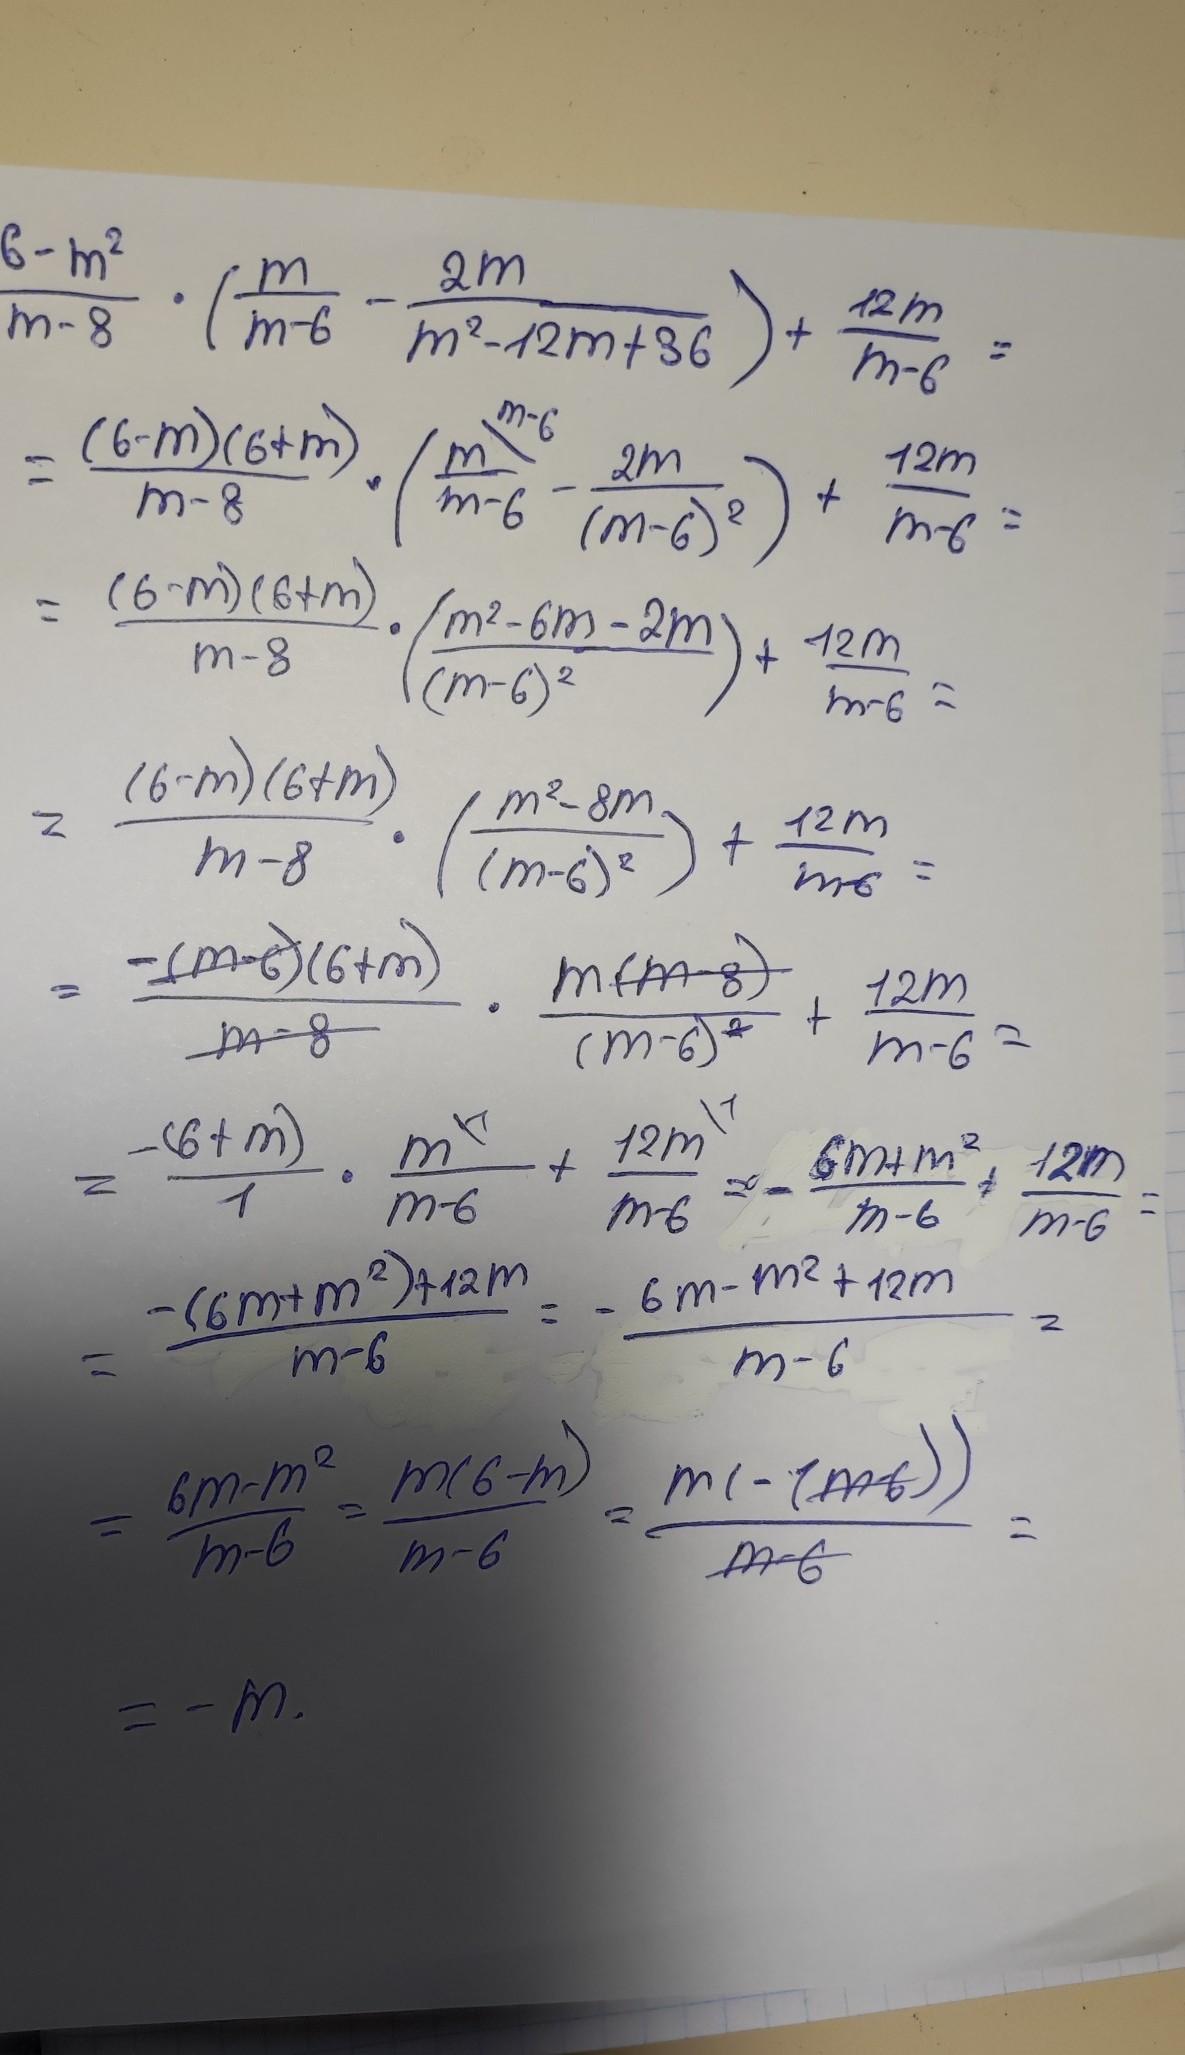 6-m²/m-8 · (m/m-6 - 2m/m²-12m+36) + 12m/m-6 =
= (6-m)(6+m)/m-8 · (m\m-6/m-6 - 2m/(m-6)²) + 12m/m-6 =
= (6-m)(6+m)/m-8 · (m²-6m-2m/(m-6)²) + 12m/m-6 =
= (6-m)(6+m)/m-8 · (m²-8m/(m-6)²) + 12m/m-6 =
= -(m-6)(6+m)/m-8 · m(m-8)/(m-6)² + 12m/m-6 =
= -(6+m)/1 · m\1/m-6 + 12m\1/m-6 = - 6m+m²/m-6 + 12m/m-6 =
= -(6m+m²)+12m/m-6 = - 6m-m²+12m/m-6 =
= 6m-m²/m-6 = m(6-m)/m-6 = m(-(m-6))/m-6 =
= -m.